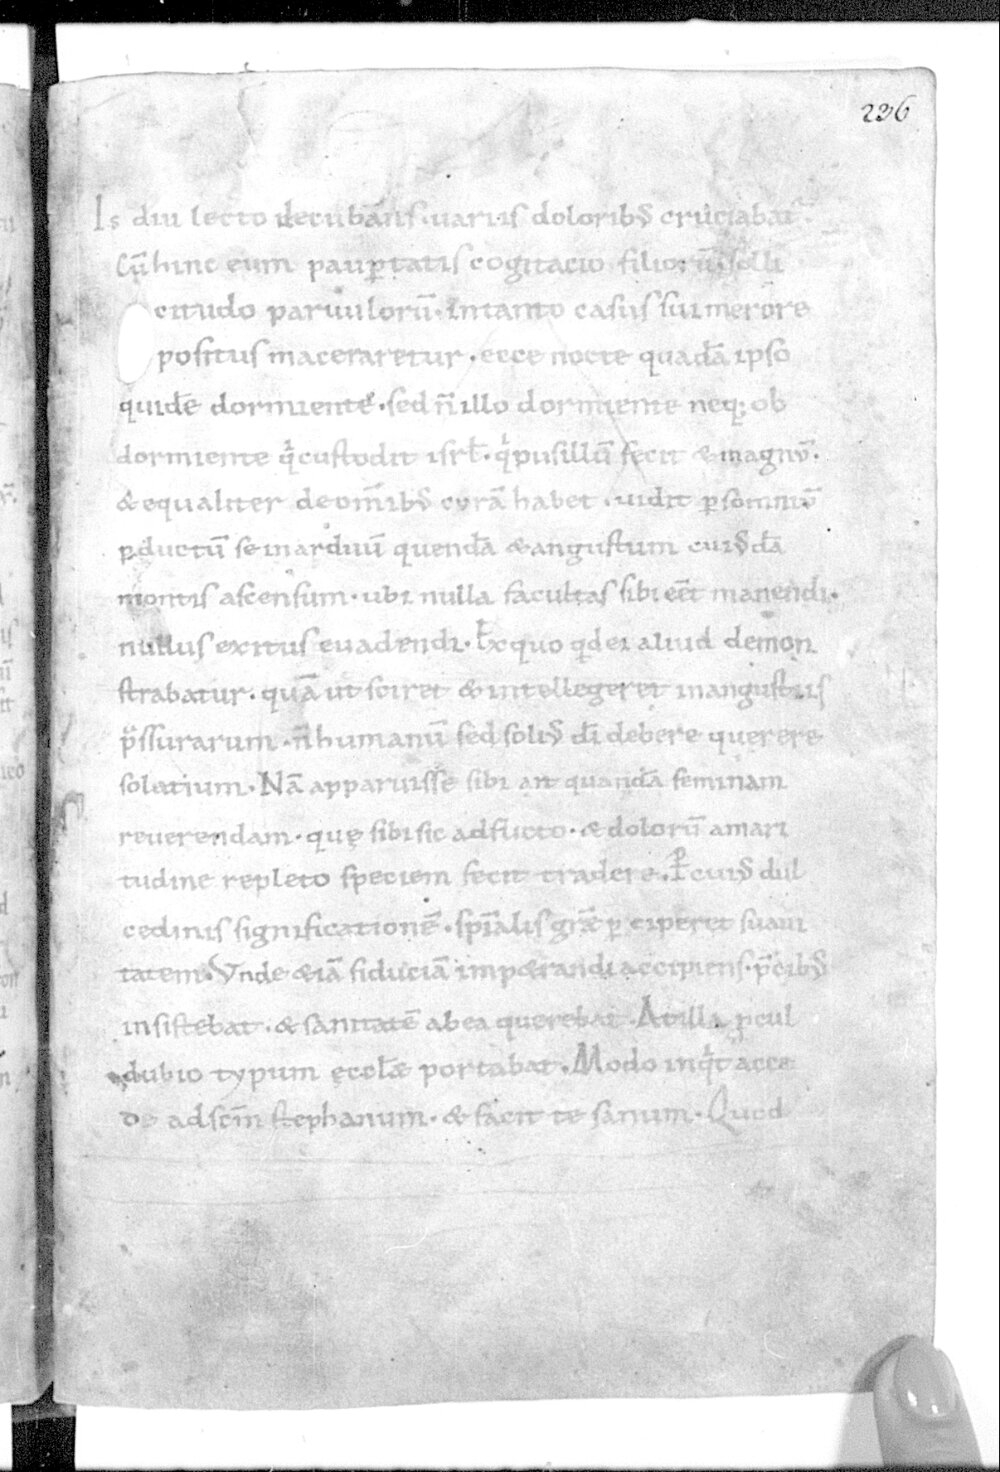 236
Is diu lecto decubans· uariis dolorib; cruciabat᷑·
Cū hinc eum paup̱tatis cogitacio filiorū solli
citudo paruulorū· intanto casus sui merore
positus maceraretur· ecce nocte quadā ipso
quidē dormiente· sed ñ illo dormiente neq; ob
dormiente q̓ custodit isrł· q̓ pusillū fecit & magnū·
& equaliter de om̄ib; curā habet· uidit p̱ somniū
p̱ductū se inarduū quendā & angustum cui;dā
montis ascensum· ubi nulla facultas sibi eēt manendi·
nullus exitus euadendi· Ex quo qd ei aliud demon
strabatur· quā ut sciret & intellegeret inangustiis
p̄ssurarum· ñ humanū sed soli; dī debere querere
solatium· Nā apparuisse sibi ait quandā feminam
reuerendam· quę sibi sic adflicto· & dolorū amari
tudine repleto speciem fecit tradere· P̱ cui; dul
cedinis significationē· spīalis grāe p̱ciperet suaui
tatem· Vnde &iā fiduciā imp&randi accipiens· p̄cib;
insistebat· & sanitatē abea querebat· Atilla p̱cul
dubio typum ęccłæ portabat· Modo inq̓t acce
de ad scm̄ stephanum· & facit te sanum· Quod